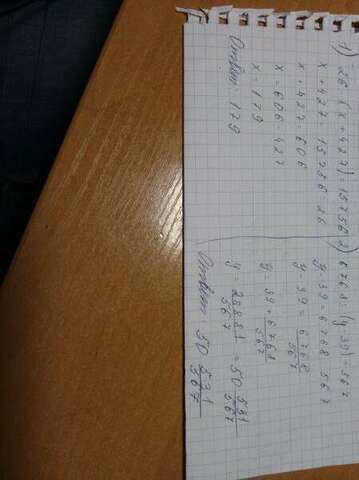 1) 26 (x+427)=15756
x+427 15756:26
x+427=606
x=606 427
x=179
Ответ: 179
2) 6768:(y 39)=567
y 39 6768 567
y 39 = 6768/567
y=39+6768/567
y= 28881/567 =50 531/567
Ответ: 50 531/567